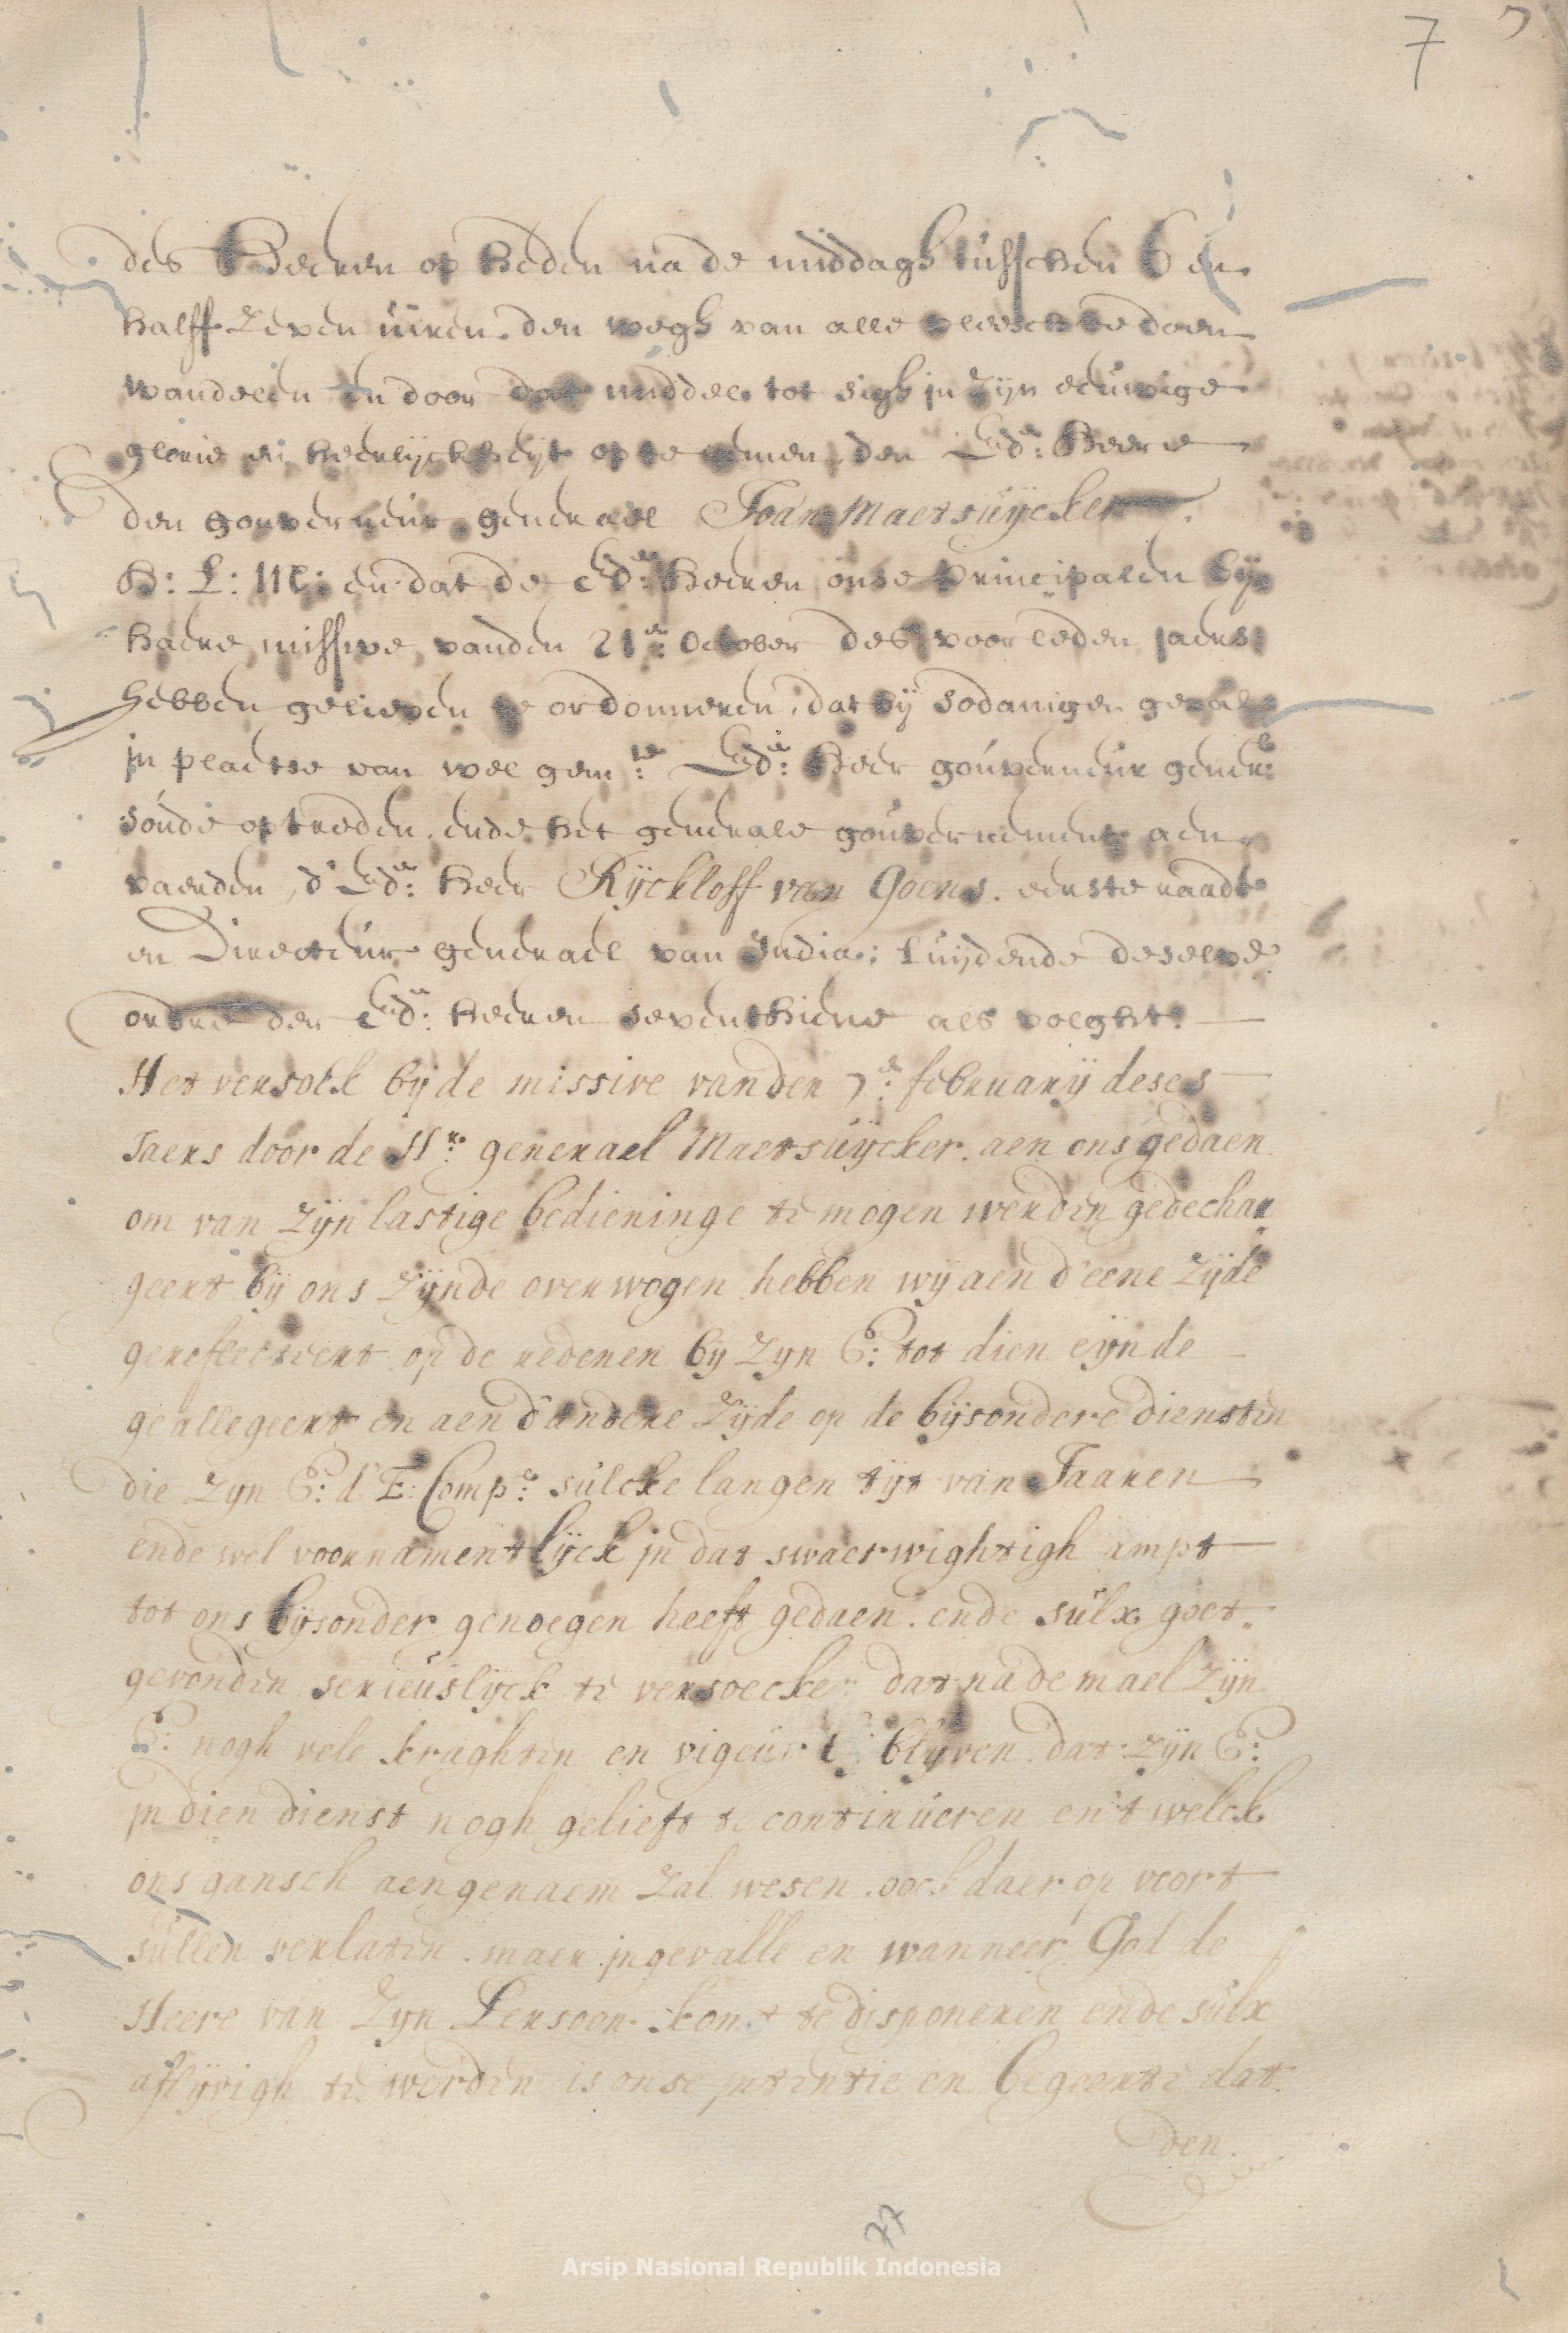 7
des Heeren op heden na de middagh tusschen 6 en
halff zeven uuren den wegh van alle vleesch te doen
wandelen en door dat middel tot sigh in zijn eeuwige
glorie en heerlijckheijt op te nemen, den Ed:en Heere
den gouverneur generael Joan Maetsuijcker
H: L: M: en dat de Ed:en heeren onse principalen bij
haere missive, vanden 21:en October des voorleden jaers
hebben gelieven te ordonneren, dat bij sodanigen geval
in plaetse van wel gem:te Ed:en Heer gouverneur gener:l
soude optreden, ende het generale gouvernement aen
vaerden, d' Ed:en Heer Rijckloff van Goens. eerste raadt
en Directeur generael van India; luijdende deselve
ordre der Ed:en heeren seventhiene als volght:
Het versoek bij de missive van den 7:en february deses
Jaers door de Hr: generael Maetsuijcker. aen ons gedaen
om van zijn lastige bedieninge te mogen werden gedechar
geert bij ons zijnde overwogen hebben wij aen d'eene zijde
gereflecteert op de redenen bij zijn E: tot dien eijnde
geallegeert en aen d'andere zijde op de bijsondere diensten
die zijn E: d' E: Comp:e sulcke langen tijt van Jaaren
ende wel voornamentlijck in dat swaerwightigh ampt
tot ons bijsonder genoegen heeft gedaen. ende sulx goet„
gevonden serieuslijck te versoecken dat nademael zijn
E: nogh vele kraghten en vigeur blijven. dat zijn E:
in dien dienst nogh gelieft te continueren en 't welck
ons gansch aengenaem zal wesen oock daer op voort
sullen verlaten. maer ingevalle en wanneer God de
Heere van zijn Persoon komt te disponeren ende sulx
aflijvigh te werden is onse intentie en begeerte dat
den.
77
Arsip Nasional Republik Indonesia